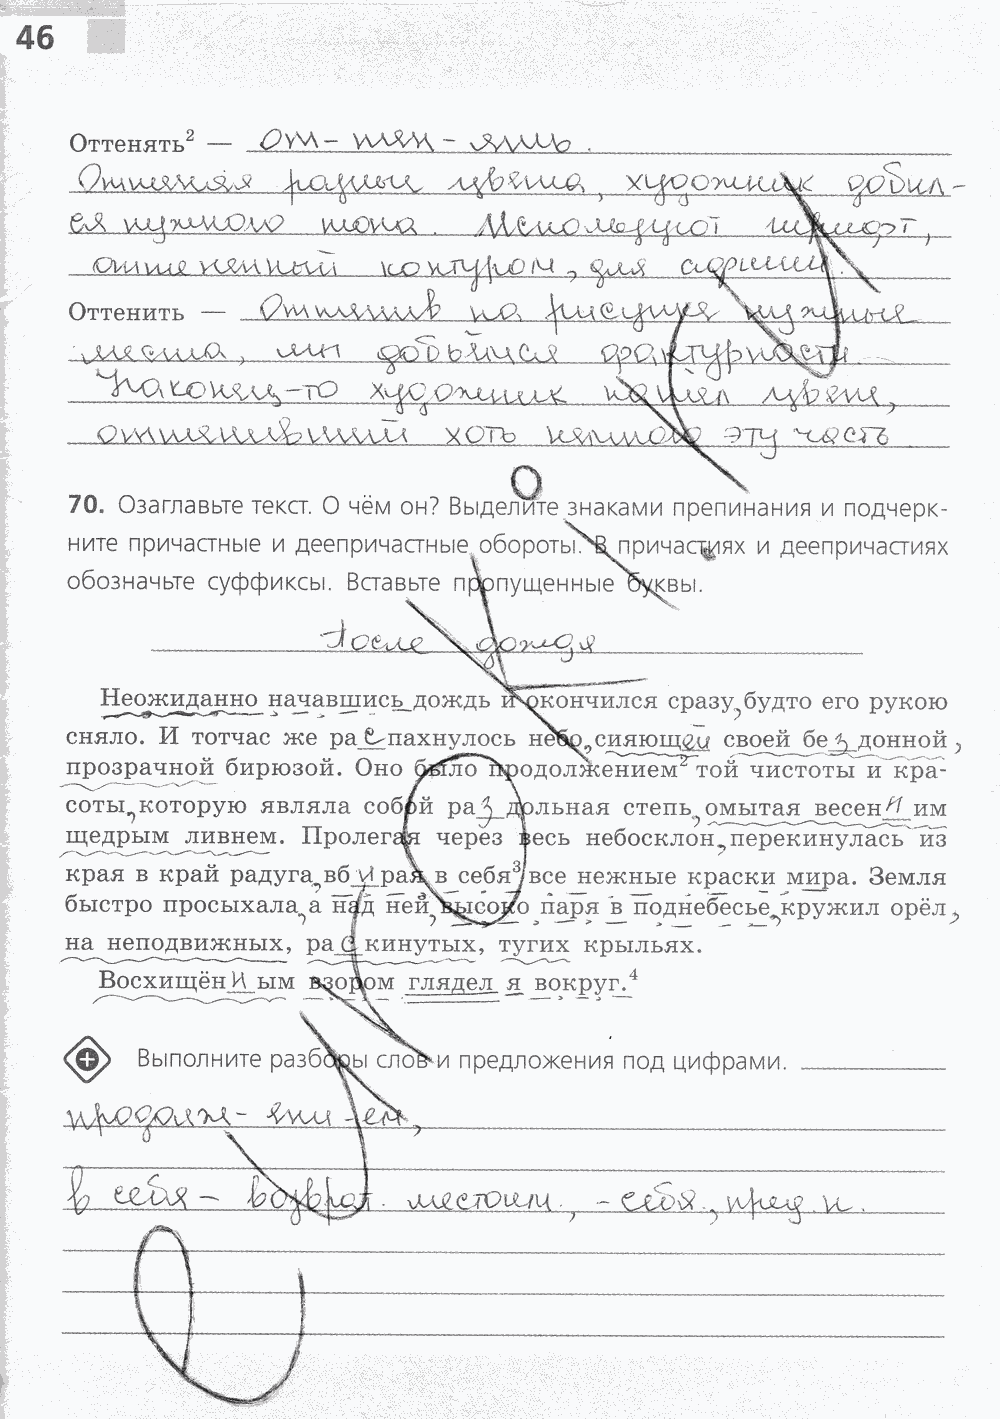 46
Оттенять² — от- тен - ять.
Оттеняя разные цвета, художник добил-
ся нужного тона. Используют шрифт,
оттененный контуром, для афиши.
Оттенить — Оттенив на рисунке нужные
места, мы добьёмся фактурности.
Наконец-то художник нашёл цвет,
оттенивший хоть немного эту часть
70. Озаглавьте текст. О чём он? Выделите знаками препинания и подчерк-
ните причастные и деепричастные обороты. В причастиях и деепричастиях
обозначьте суффиксы. Вставьте пропущенные буквы.
После дождя
Неожиданно начавшись дождь и окончился сразу, будто его рукою
сняло. И тотчас же распахнулось небо, сияющей своей бездонной,
прозрачной бирюзой. Оно было продолжением² той чистоты и кра-
соты, которую являла собой раздольная степь, омытая весенним
щедрым ливнем. Пролегая через весь небосклон, перекинулась из
края в край радуга, вбирая в себя³ все нежные краски мира. Земля
быстро просыхала, а над ней, высоко паря в поднебесье, кружил орёл,
на неподвижных, раскинутых, тугих крыльях.
Восхищённым взором глядел я вокруг.⁴
Выполните разборы слов и предложения под цифрами.
продолж- ени -ем,
в себя – возврат. местоим., - себя., пред. п.